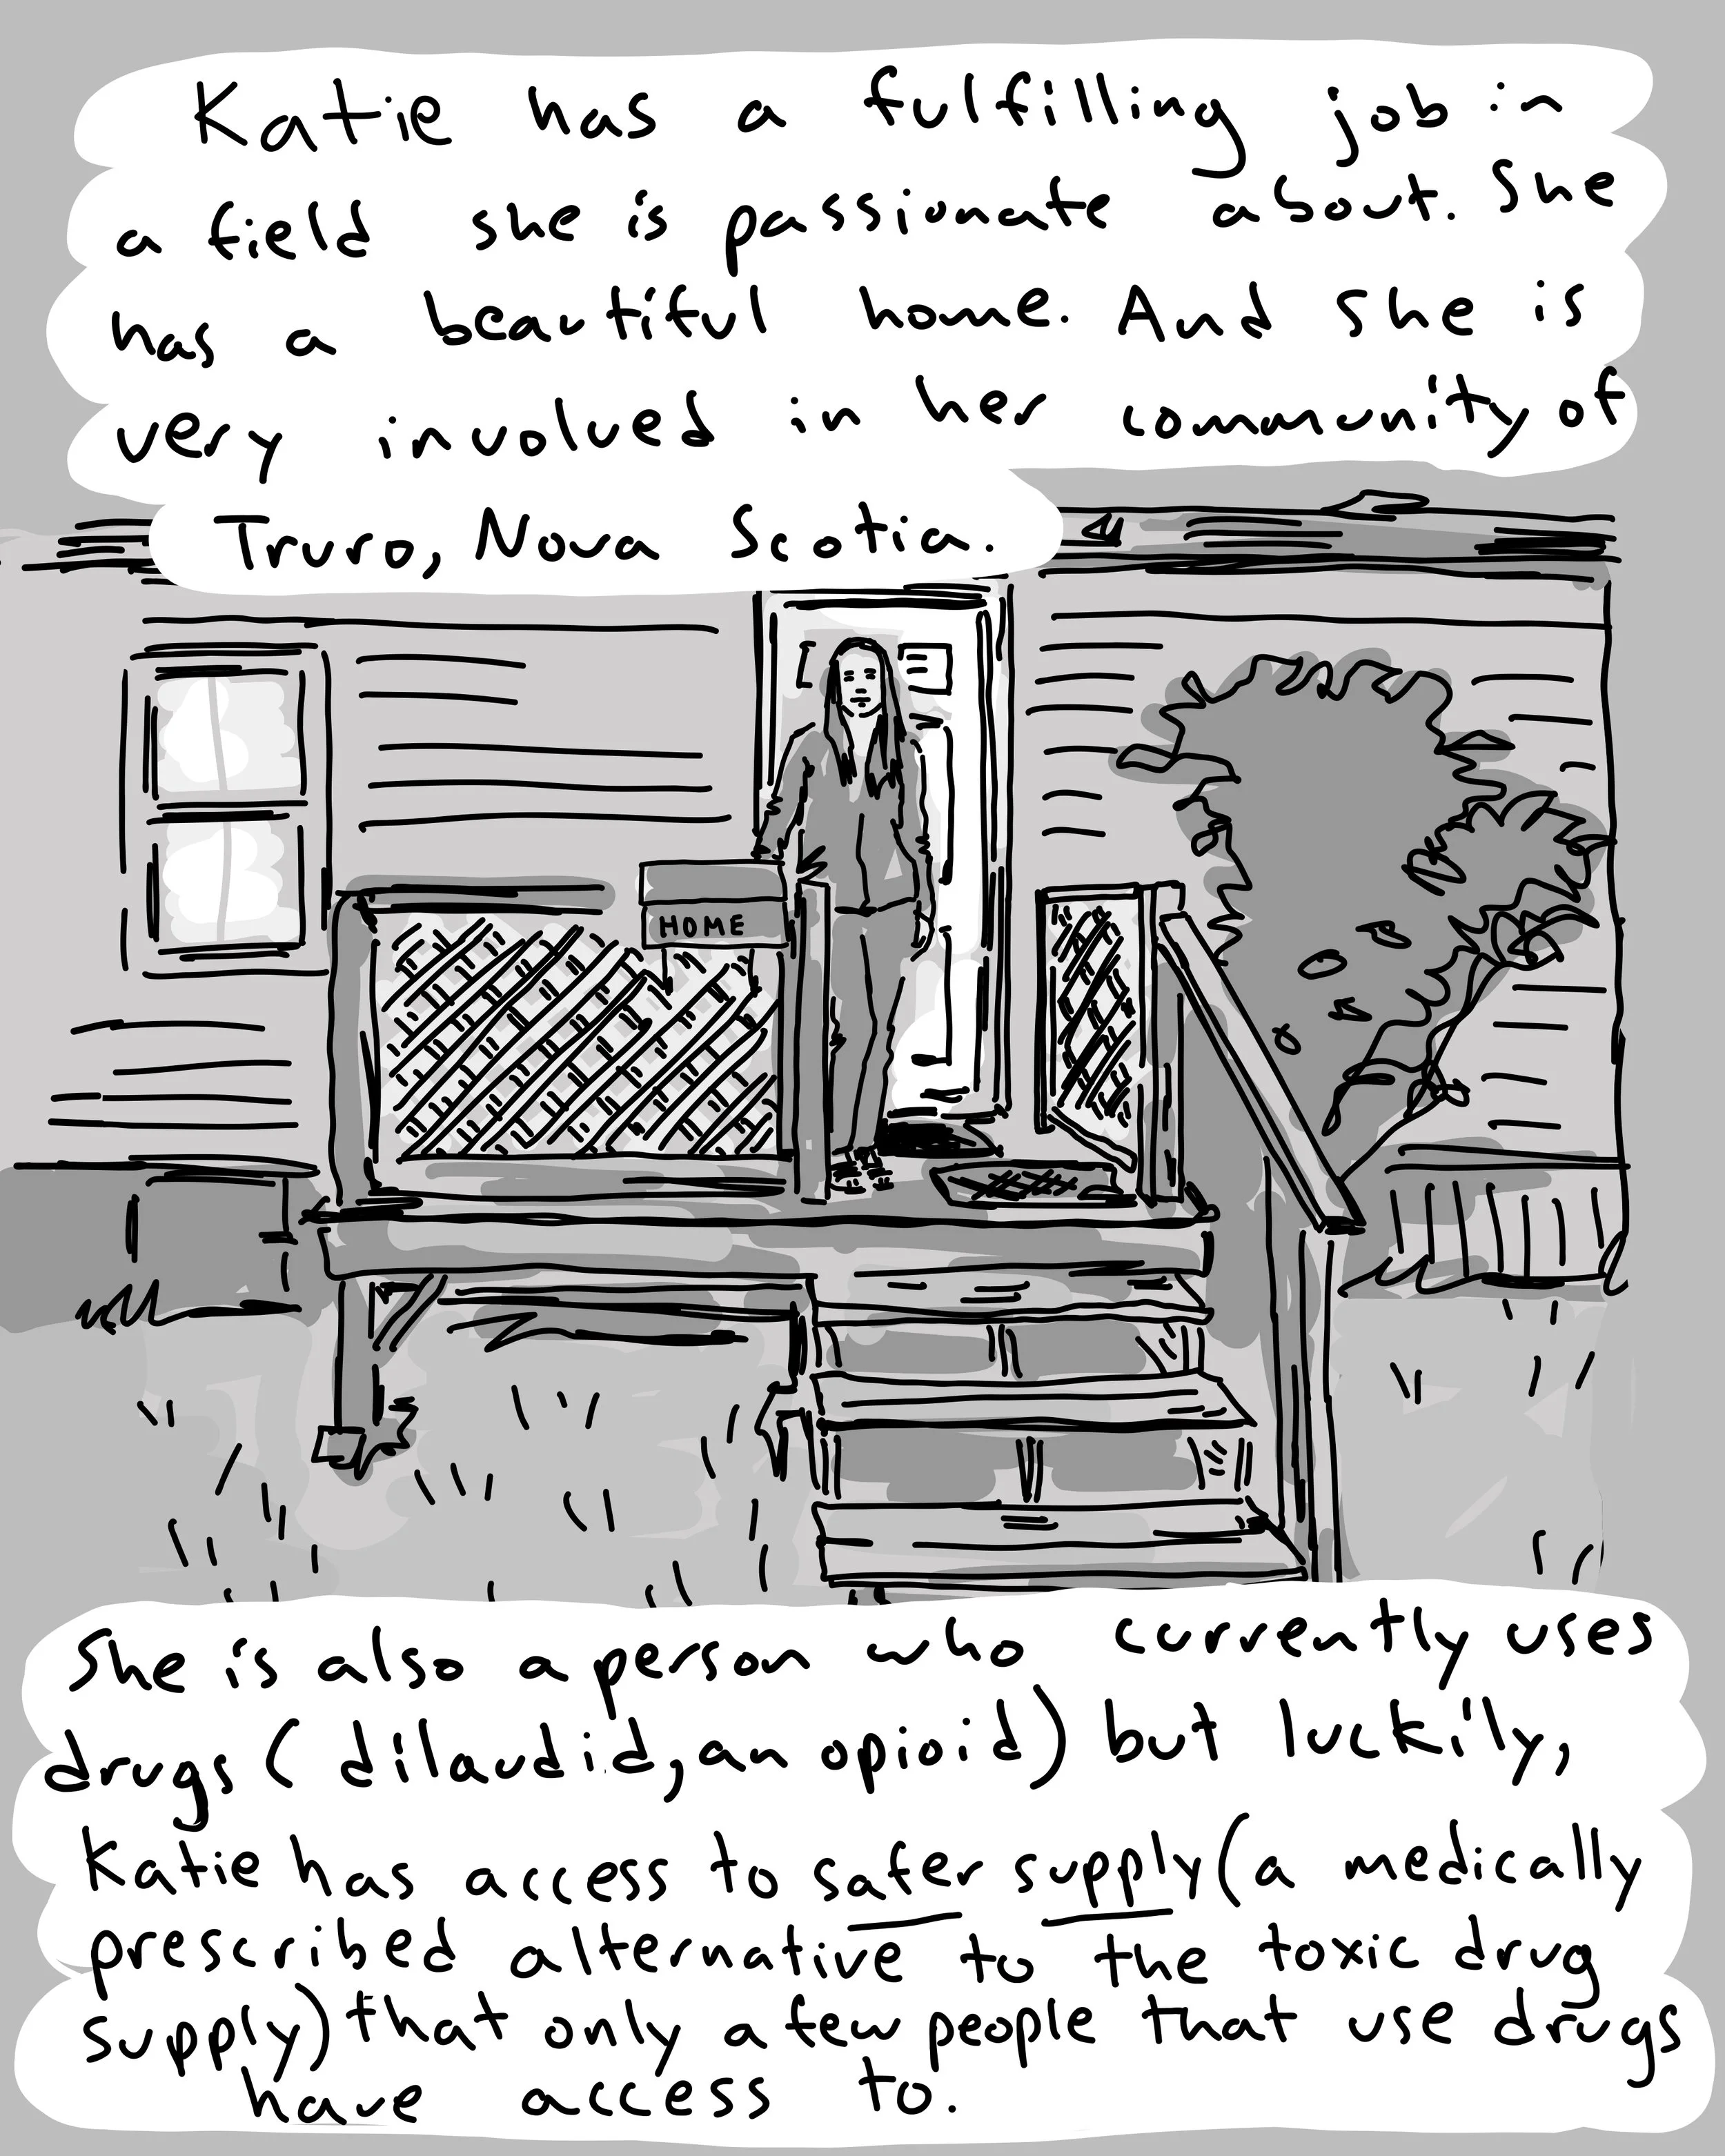 Katie has a fulfilling job in
a field she is passionate about. She
has a beautiful home. And she is
very involved in her community of
Truro, Nova Scotia.
HOME
She is also a person who currently uses
drugs (dilaudid, an opioid) but luckily,
Katie has access to safer supply (a medically
prescribed alternative to the toxic drug
supply) that only a few people that use drugs
have access to.